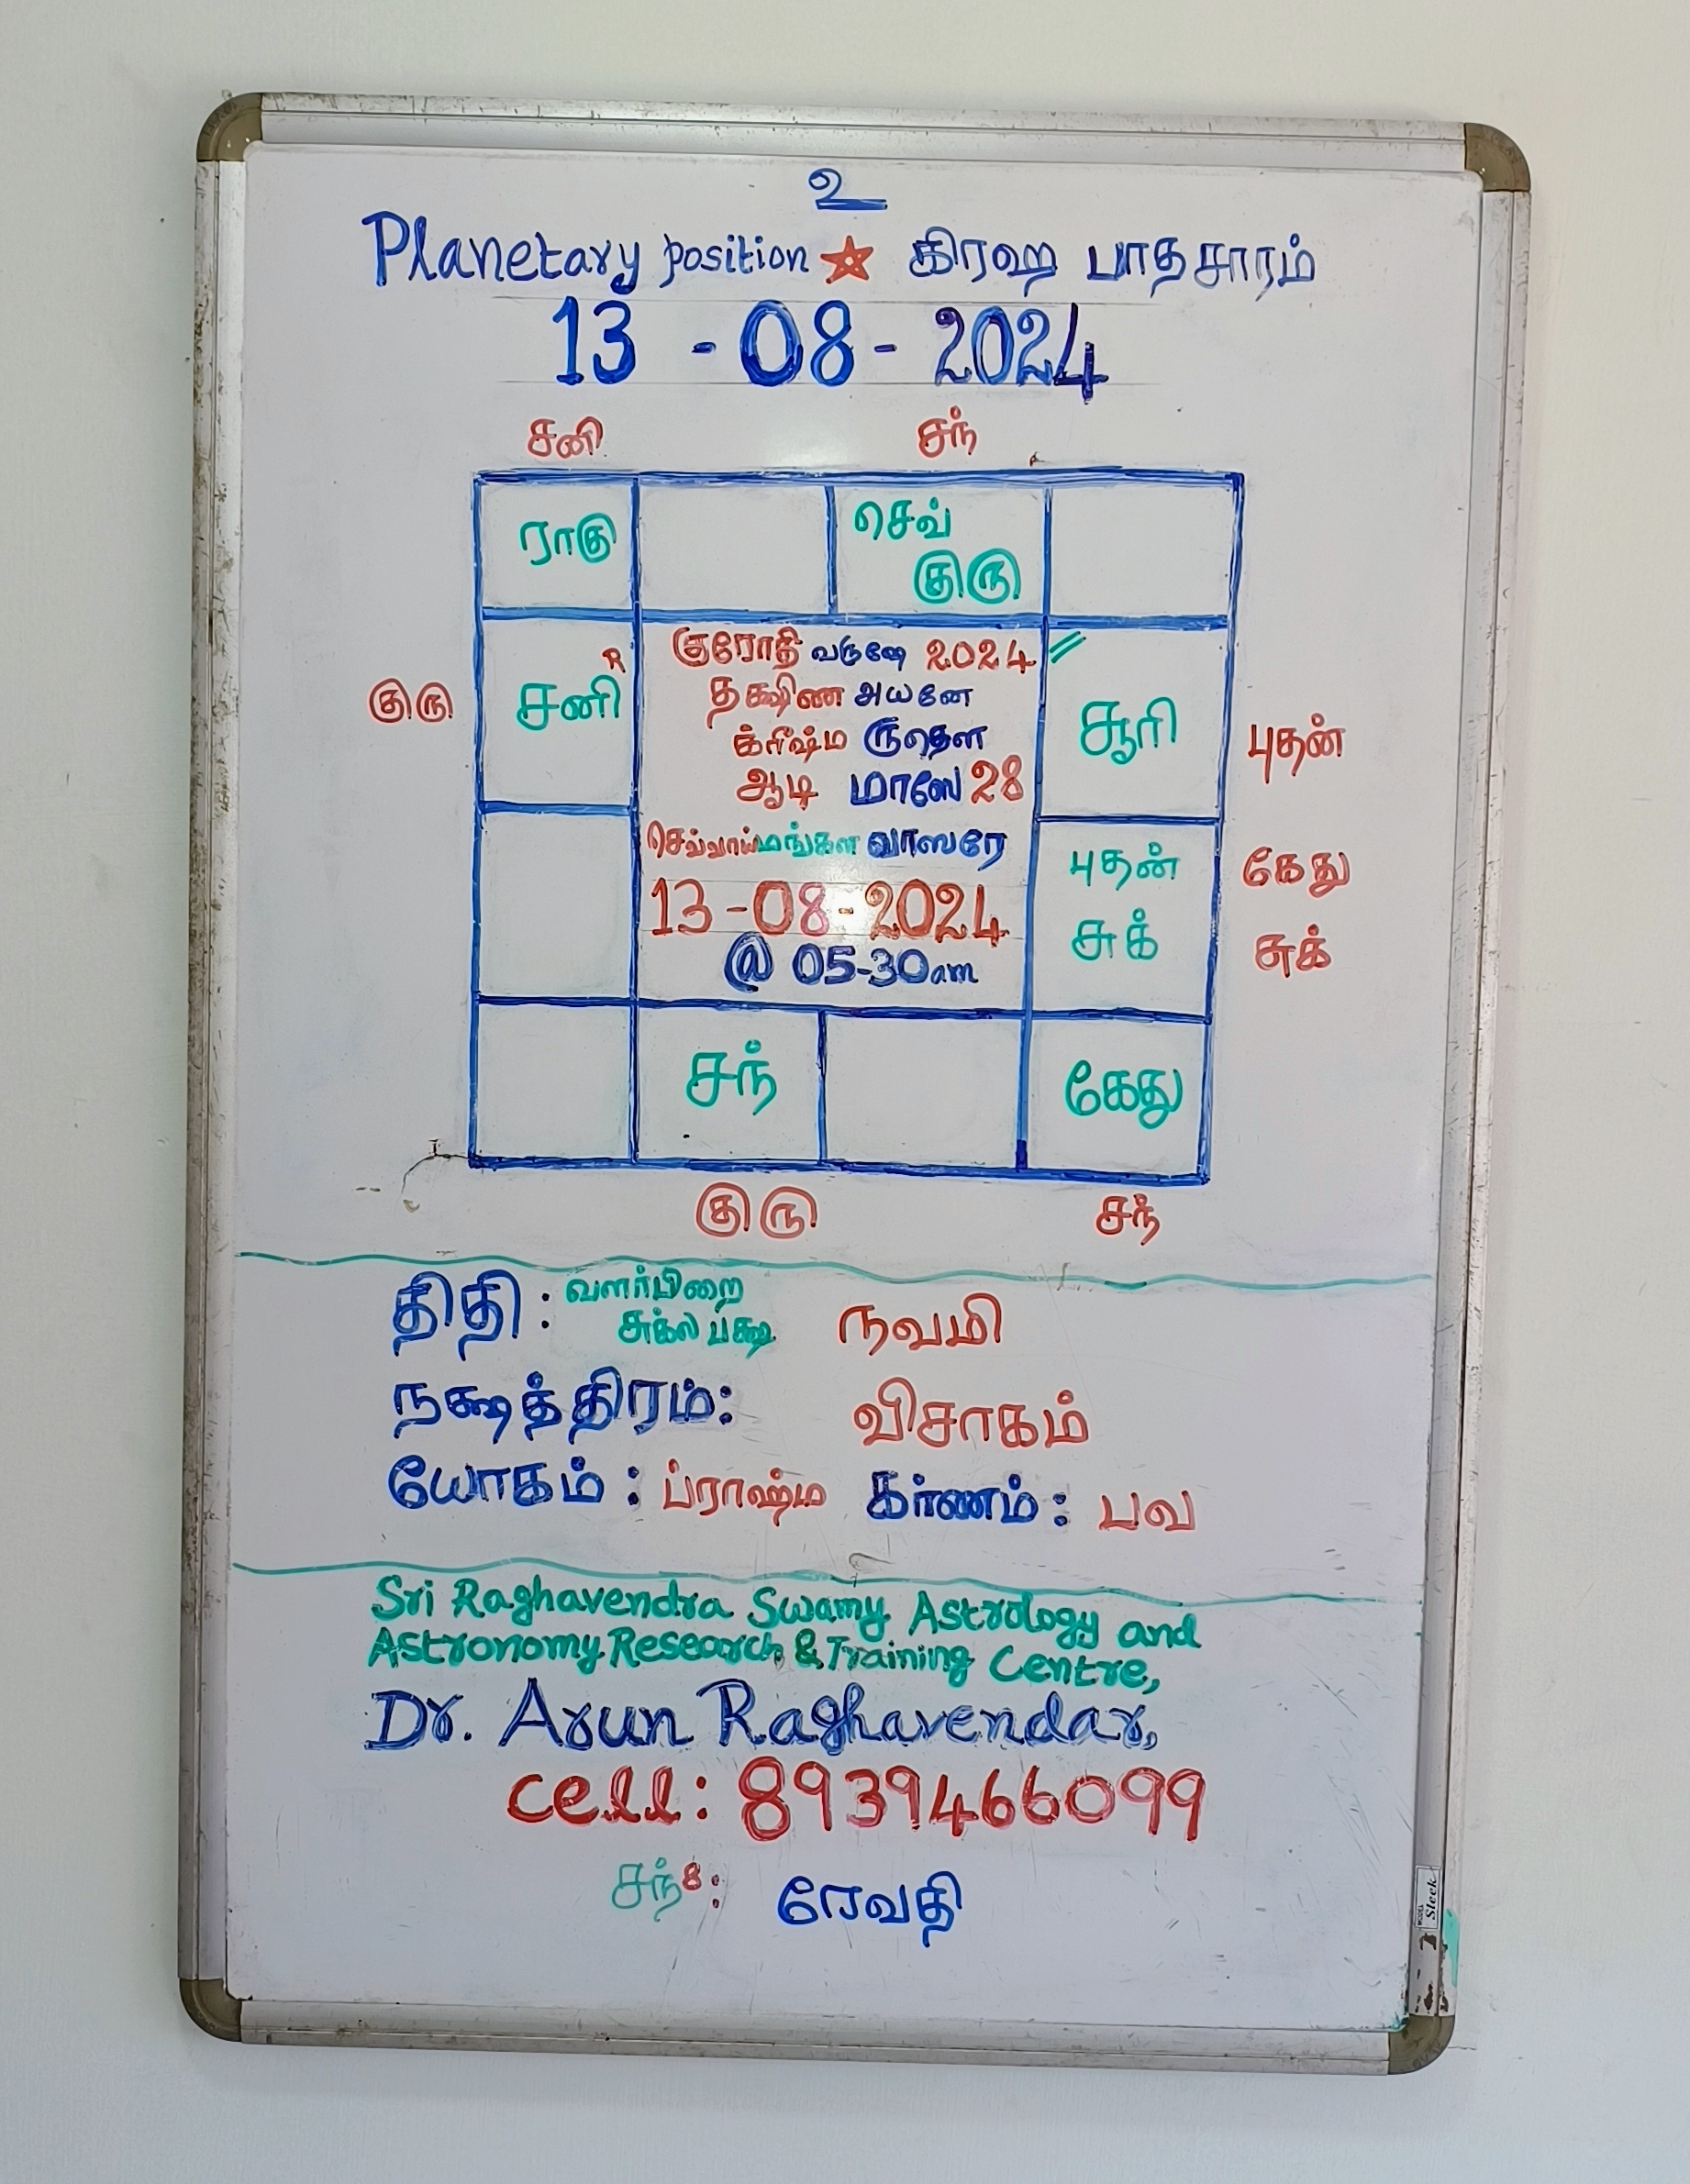 உ
Planetary position ☆ கிரஹ பாதசாரம்
13 - 08 - 2024
சனி சந்
ராகு செவ்
குரு
குரோதி வருஷே 2024
R
குரு சனி தக்ஷிண அயனே சூரி புதன்
க்ரீஷ்ம ருதௌ
ஆடி மாஸே 28
செவ்வாய் மங்கள வாஸரே புதன் கேது
13-08-2024 சுக் சுக்
@ 05-30am
சந் கேது
குரு சந்
திதி : வளர்பிறை
சுக்ல பக்ஷ நவமி
நக்ஷத்திரம்: விசாகம்
யோகம் : ப்ராஹ்ம கர்ணம் : பவ
Sri Raghavendra Swamy Astrology and
Astronomy Research & Training Centre,
Dr. Arun Raghavendar,
cell: 8939466099
சந் 8: ரேவதி
Sleek